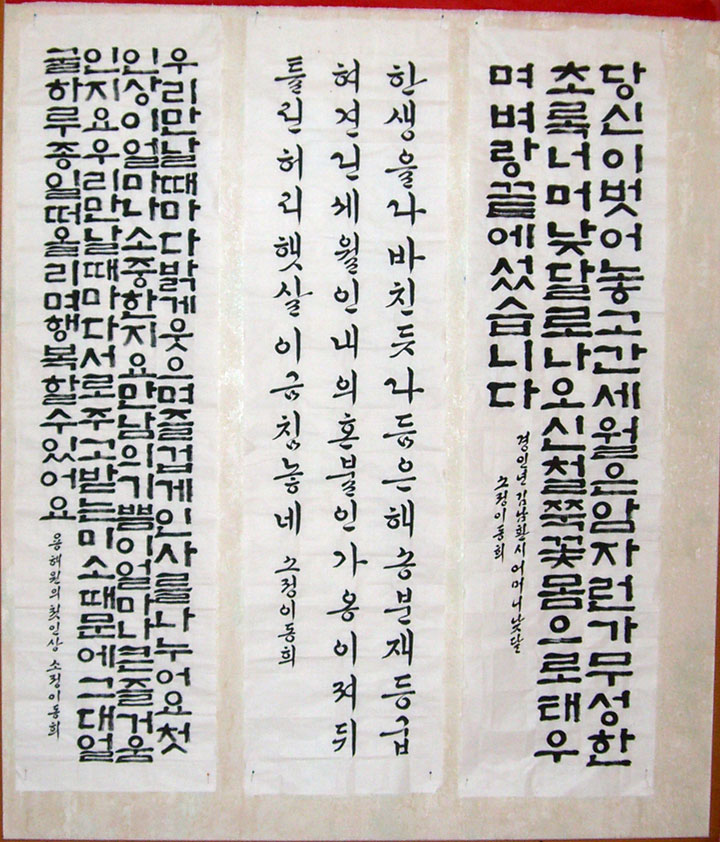 당신이벗어놓고간세월은암자런가무성한
초록너머낮달로나오신철쭉꽃몸으로태우
며벼랑끝에섰습니다
경인년김남환시어머니낮달
소정이동희
한생을다바친듯다듬은해송분재등굽
혀견딘세월인내의혼불인가용이저뒤
틀린허리햇살이금침놓네 소정이동희
우리만날때마다밝게웃으며즐겁게인사를나누어요첫
인상이얼마나소중한지요만남의기쁨이얼마나큰즐거움
인지요우리만날때마다서로주고받는미소때문에그대얼
굴하루종일떠올리며행복할수있어요 용혜원의첫인상 소정이동희